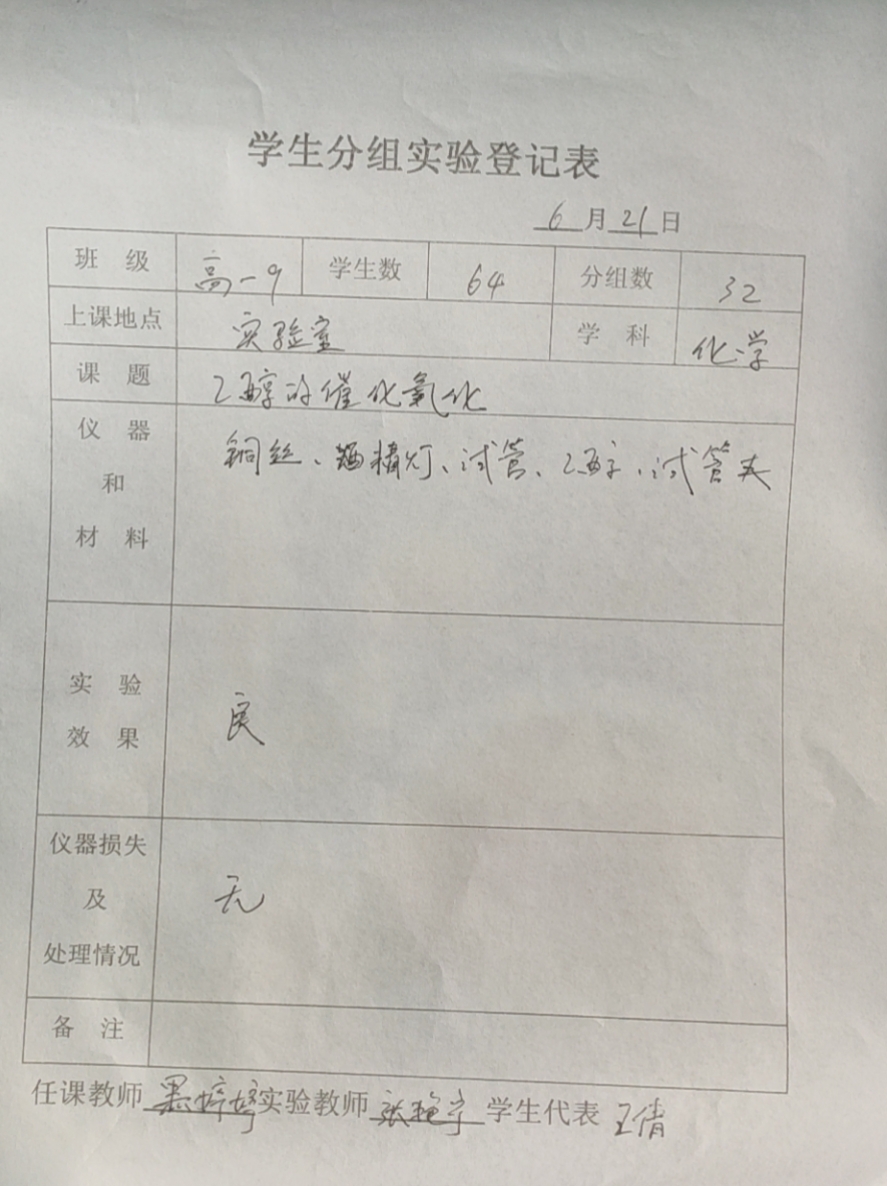 学生分组实验登记表
6月21日
班 级 高一9 学生数 64 分组数 32
上课地点 实验室 学 科 化学
课 题 乙醇的催化氧化
仪 器 和 材 料 铜丝、酒精灯、试管、乙醇、试管夹
实 验 效 果 良
仪器损失 及 处理情况 无
备 注
任课教师 婷婷 实验教师 张艳 学生代表 王倩